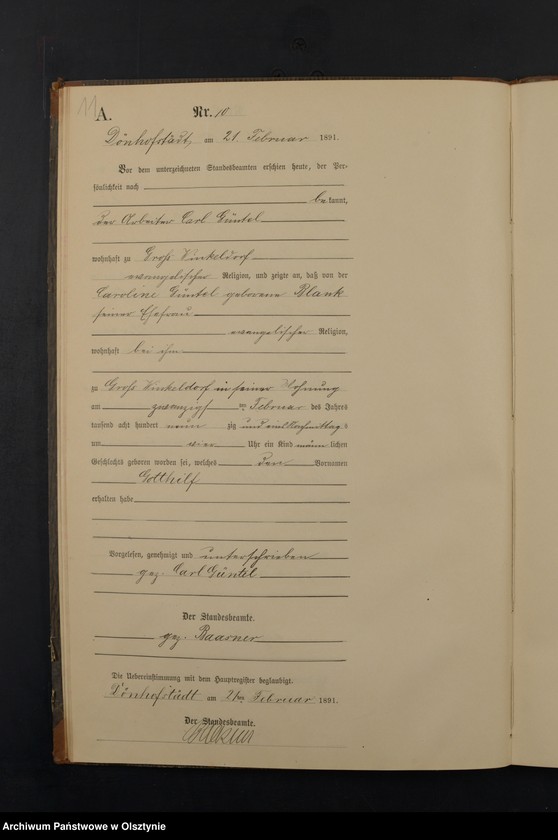 11
A.
Nr. 10
Dönhofstädt, am 21. Februar 1891.
Vor dem unterzeichneten Standesbeamten erschien heute, der Per-
sönlichkeit nach
be kannt,
der Arbeiter Carl Güntel
wohnhaft zu Groß Winkeldorf
evangelischer Religion, und zeigte an, daß von der
Caroline Güntel geborene Blank
seiner Ehefrau
evangelischer Religion,
wohnhaft bei ihm
zu Groß Winkeldorf in seiner Wohnung
am zwanzigsten Februar des Jahres
tausend acht hundert neun zig und eins Nachmittags
um vier Uhr ein Kind männ lichen
Geschlechts geboren worden sei, welches den Vornamen
Gotthilf
erhalten habe
Vorgelesen, genehmigt und unterschrieben
gez. Carl Güntel
Der Standesbeamte.
gez. Baarner
Die Uebereinstimmung mit dem Hauptregister beglaubigt.
Dönhofstädt am 21ten Februar 1891.
Der Standesbeamte.
Archiwum Państwowe w Olsztynie